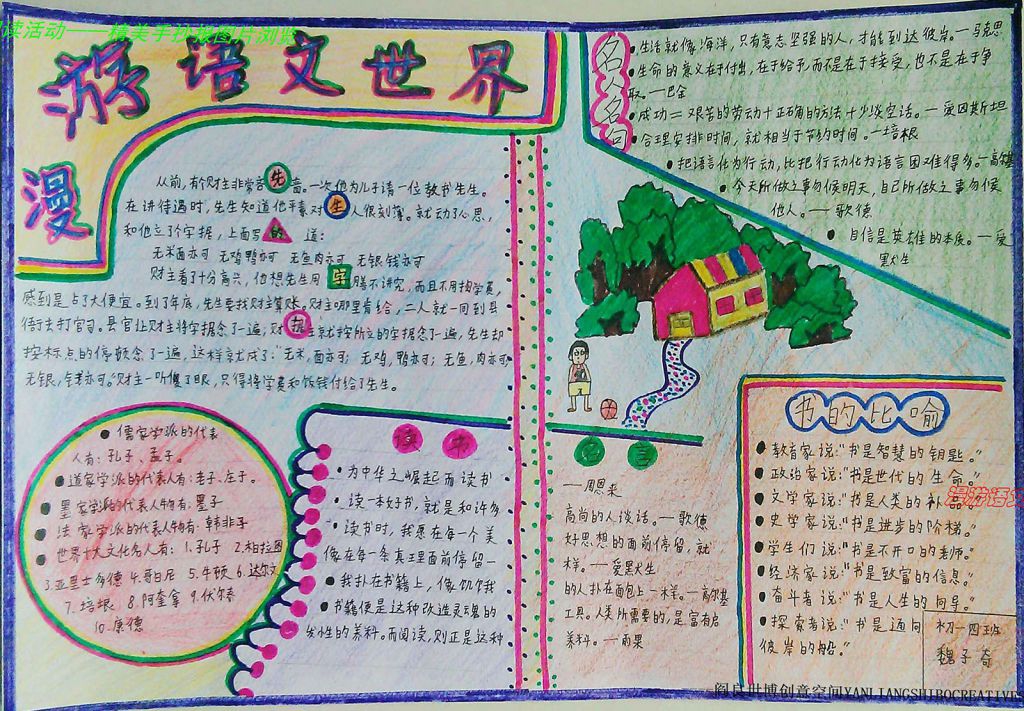 读活动——精美手抄报图片浏览
漫游语文世界
从前,有个财主非常吝
先
啬。一次他为儿子请一位教书先生。
在讲待遇时,先生知道他平素对
生
人很刻薄。就动了心思,
和他立了字据,上面写
的
道:
无米面亦可 无鸡鸭亦可 无鱼肉亦可 无银钱亦可
财主看了十分高兴,他想先生用
字
膳不讲究,而且不用掏学费,
感到是占了大便宜。到了年底,先生要找财主算账。财主哪里肯给,二人就一同到县
衙去打官司。县官让财主将字据念了一遍,财
据
主就按所立的字据念了一遍,先生却
按标点的停顿念了一遍,这样就成了:“无米,面亦可;无鸡,鸭亦可;无鱼,肉亦可
无银,钱亦可。”财主一听傻了眼,只得将学费和饭钱付给了先生。
儒家学派的代表
人有:孔子、孟子。
道家学派的代表人有:老子、庄子。
墨家学派的代表人物有:墨子
法家学派的代表人物有:韩非子
世界十大文化名人有:1.孔子 2.柏拉图
3.亚里士多德 4.哥白尼 5.牛顿 6.达尔文
7.培根 8.阿奎拿 9.伏尔泰
10.康德
读书名言
为中华之崛起而读书
——周恩来
读一本好书,就是和许多
高尚的人谈话。—歌德
读书时,我愿在每一个美
好思想的面前停留,就
像在每一条真理面前停留一
样。—爱默生
我扑在书籍上,像饥饿
的人扑在面包上一样。—高尔基
书籍便是这种改造灵魂的
工具。人类所需要的,是富有启
发性的养料。而阅读,则正是这种
养料。—雨果
名人名句
生活就像海洋,只有意志坚强的人,才能到达彼岸。—马克思
生命的意义在于付出,在于给予,而不是在于接受,也不是在于争
取。—巴金
成功=艰苦的劳动+正确的方法+少谈空话。—爱因斯坦
合理安排时间,就相当于节约时间。—培根
把语言化为行动,比把行动化为语言困难得多。—高尔基
今天所做之事勿候明天,自己所做之事勿候
他人。—歌德
自信是英雄的本质。—爱
默生
书的比喻
教育家说:“书是智慧的钥匙。”
政治家说:“书是世代的生命。”
文学家说:“书是人类的补品。”
史学家说:“书是进步的阶梯。”
学生们说:“书是不开口的老师。”
经济家说:“书是致富的信息。”
奋斗者说:“书是人生的向导。”
探索者说:“书是通向
彼岸的船。”
漫游语文
初一四班
魏子奇
阎良世博创意空间YANLIANGSHIBOCREATIVES